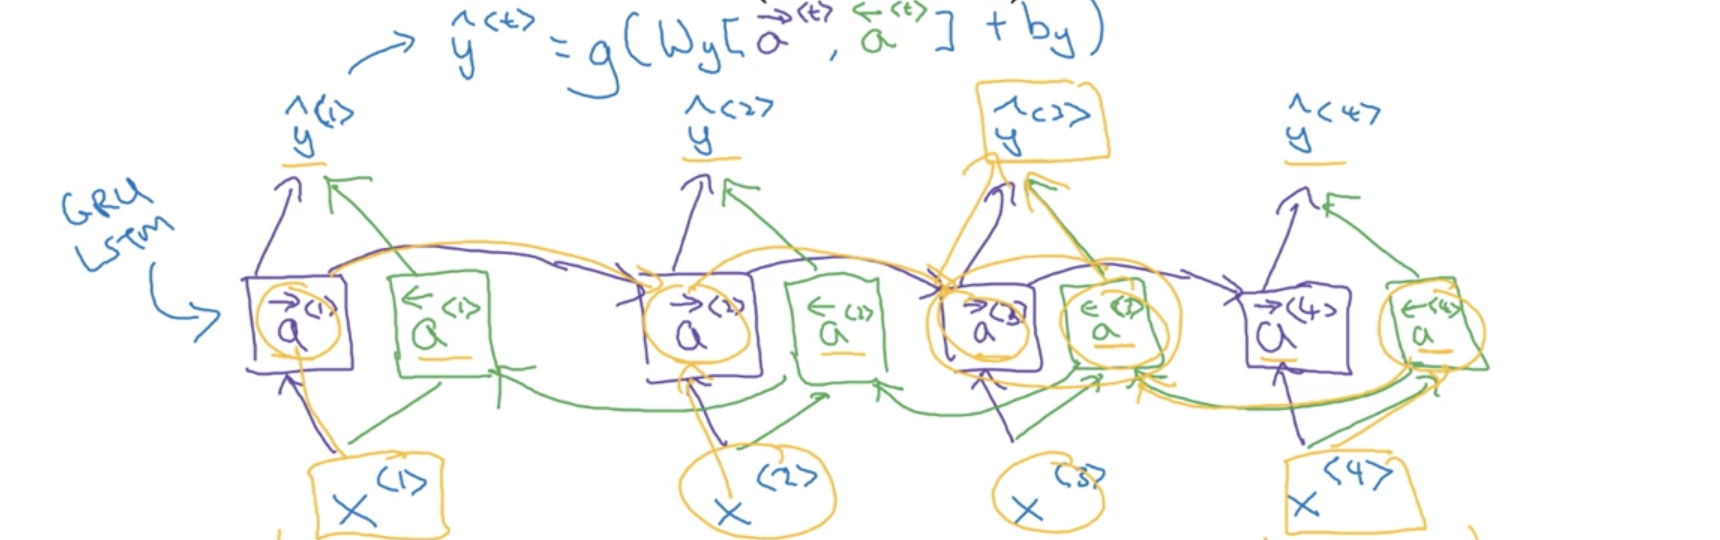 ŷ<t> = g(Wy[a→<t>, a←<t>] + by)
ŷ<1> ŷ<2> ŷ<3> ŷ<4>
GRU
LSTM
a→<1> a←<1> a→<2> a←<2> a→<3> a←<3> a→<4> a←<4>
x<1> x<2> x<3> x<4>